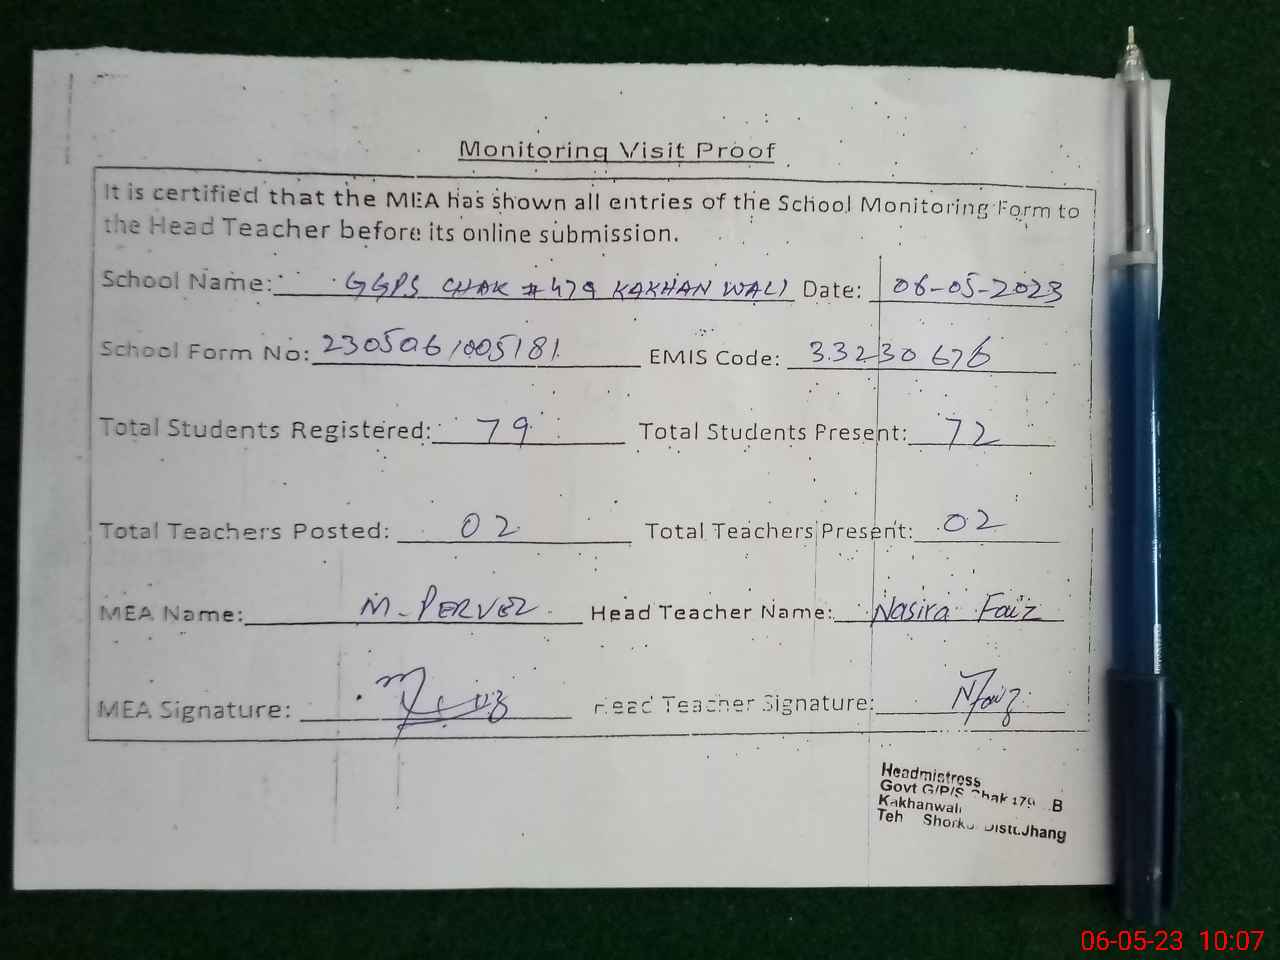 Monitoring Visit Proof
It is certified that the MEA has shown all entries of the School Monitoring Form to
the Head Teacher before its online submission.
School Name: GGPS CHAK #479 KAKHAN WALI Date: 06-05-2023
School Form No: 230506/005181 EMIS Code: 33230676
Total Students Registered: 79 Total Students Present: 72
Total Teachers Posted: 02 Total Teachers Present: 02
MEA Name: M. PERVEZ Head Teacher Name: Nasira Faiz
MEA Signature: Head Teacher Signature: NFaiz
Headmistress
Govt G/P/S Chak 479 B
Kakhanwali
Teh Shorko Distt.Jhang
06-05-23 10:07